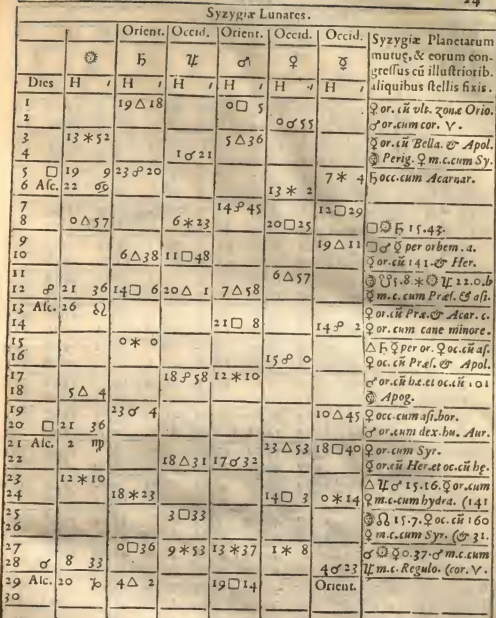 24
Syzygiæ Lunares.
Orient. Occid. Orient. Occid. Occid. Syzygiæ Planetarum
☼ ♄ ♃ ♂ ♀ ☿ mutuę, & eorum con-
gressus cū illustriorib.
Dies H ′ H ′ H ′ H ′ H ′ H ′ aliquibus stellis fixis.
1 19△18 0□ 5 ♀ or. cū vlt. zonæ Orio.
2 0☌55 ♂ or.cum cor. ♈.
3 13✶52 5△36 ☿ or. cū Bella. & Apol.
4 1☌21 Perig. ♀ m.c.cum Sy.
5 □ 19 9 23☍20 7✶ 4 ♄ occ.cum Acarnar.
6 Asc. 22 ♋ 13✶ 2
7 14☍45 12□29
8 0△57 6✶23 20□25 □☼♄ 15.43.
9 19△11 □♂☿ per orbem. a.
10 6△38 11□48 ☿ or.cū 141.& Her.
11 6△57 ☋5.8.✶☼♃ 22.0.b
12 ☍ 21 36 14□ 6 20△ 1 7△58 ☿ m.c.cum Præs. & asi.
13 Asc. 26 ♌ ♀ or.cū Præ.& Acar. c.
14 21□ 8 14☍ 2 ♀ or. cum cane minore.
15 0✶ 0 △♄☿ per or. ♀ oc.cū as.
16 15☍ 0 ♀ oc. cū Præs. & Apol.
17 18☍58 12✶10 ♂ or.cū hæ.et oc.cū 101
18 5△ 4 Apog.
19 23☌ 4 10△45 ♀ occ.cum asi.bor.
20 □ 21 36 ♂ or.cum dex.hu. Aur.
21 Asc. 2 ♍ 23△53 18□40 ♀ or.cum Syr.
22 18△31 17☌32 ☿ or.cū Her.et oc.cū hę.
23 12✶10 △♃♂ 15.16. ☿ or.cum
24 18✶23 14□ 3 0✶14 ♀ m.c.cum hydra. (141
25 3□33 ☊ 15.7.♀ oc.cū 160
26 ♀ m.c.cum Syr. (& 31.
27 0□36 9✶53 13✶37 1✶ 8 ☌☼☿ 0.37.♂ m.c.cum
28 ☌ 8 33 4☌23 ♃ m.c. Regulo. (cor. ♈.
29 Asc. 20 ♑ 4△ 2 19□14 Orient.
30